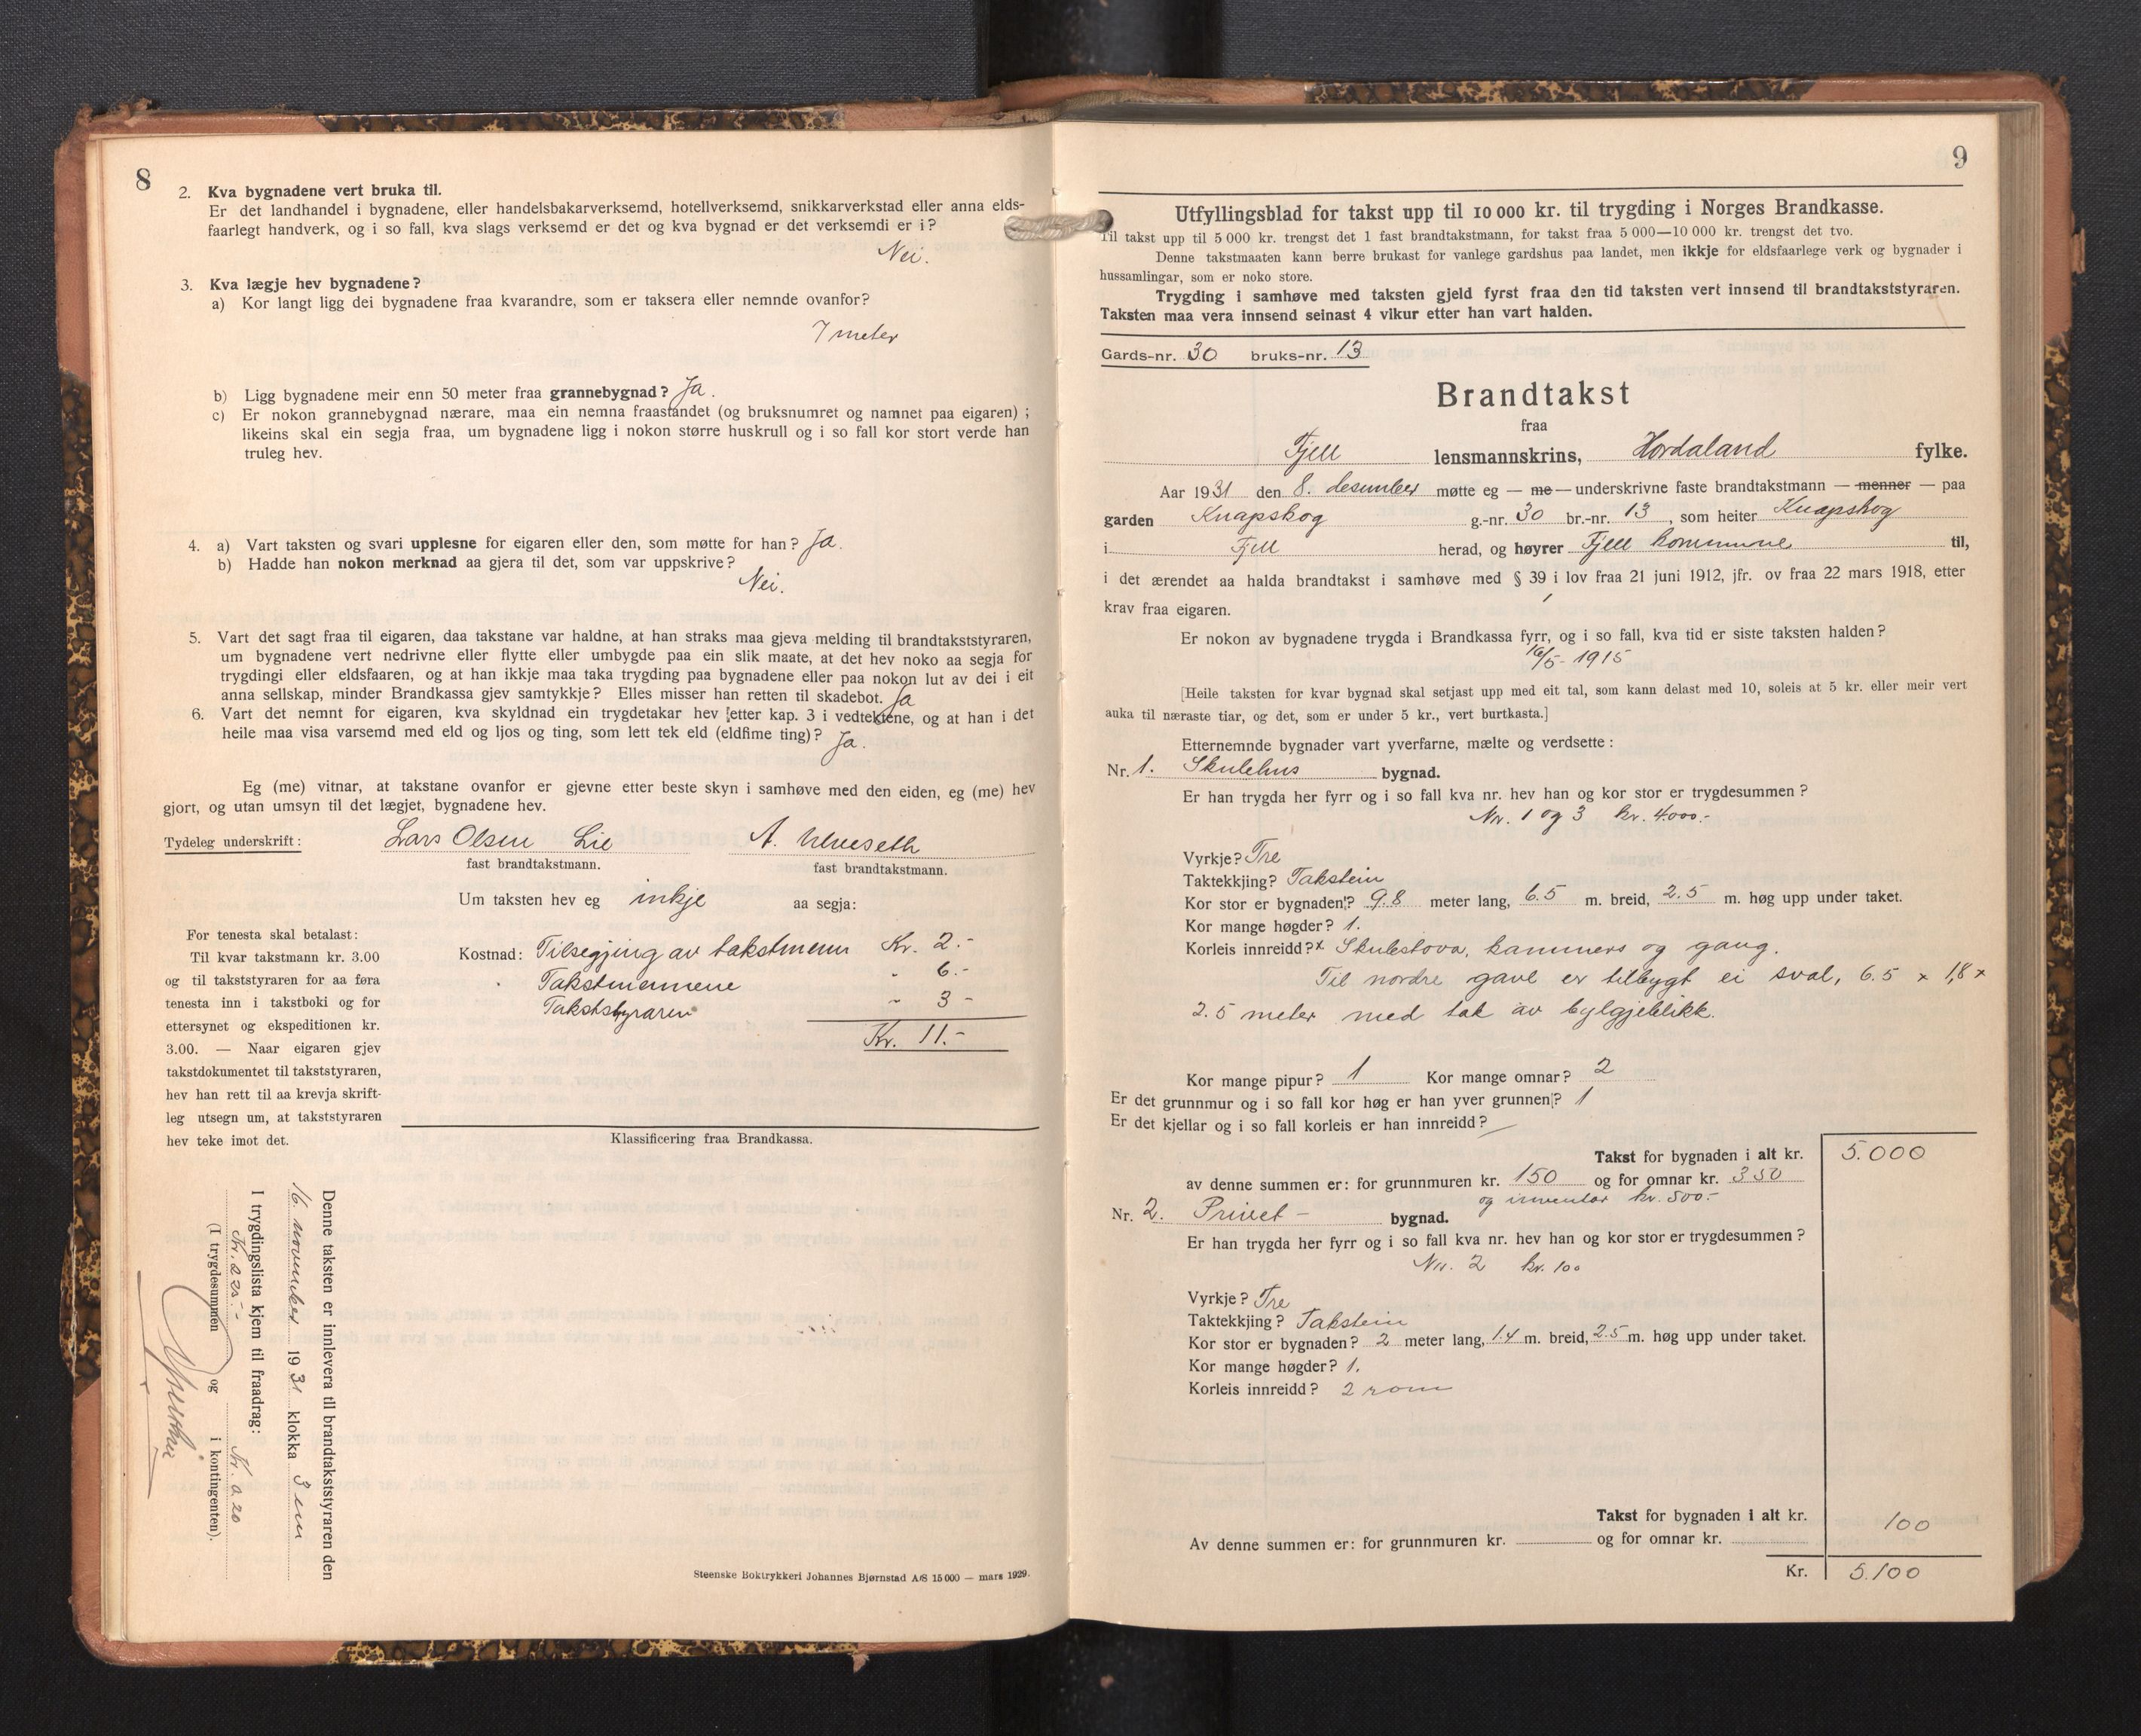 8
2. Kva bygnadene vert bruka til.
Er det landhandel i bygnadene, eller handelsbakarverksemd, hotellverksemd, snikkarverkstad eller anna elds-
faarlegt handverk, og i so fall, kva slags verksemd er det og kva bygnad er det verksemdi er i?
Nei.
3. Kva lægje hev bygnadene?
a) Kor langt ligg dei bygnadene fraa kvarandre, som er taksera eller nemnde ovanfor?
7 meter
b) Ligg bygnadene meir enn 50 meter fraa grannebygnad? Ja.
c) Er nokon grannebygnad nærare, maa ein nemna fraastandet (og bruksnumret og namnet paa eigaren) ;
likeins skal ein segja fraa, um bygnadene ligg i nokon større huskrull og i so fall kor stort verde han
truleg hev.
4. a) Vart taksten og svari upplesne for eigaren eller den, som møtte for han? Ja.
b) Hadde han nokon merknad aa gjera til det, som var uppskrive?
Nei.
5. Vart det sagt fraa til eigaren, daa takstane var haldne, at han straks maa gjeva melding til brandtakststyraren,
um bygnadene vert nedrivne eller flytte eller umbygde paa ein slik maate, at det hev noko aa segja for
trygdingi eller eldsfaaren, og at han ikkje maa taka trygding paa bygnadene eller paa nokon lut av dei i eit
anna sellskap, minder Brandkassa gjev samtykkje? Elles misser han retten til skadebot. Ja
6. Vart det nemnt for eigaren, kva skyldnad ein trygdetakar hev etter kap. 3 i vedtektene, og at han i det
heile maa visa varsemd med eld og ljos og ting, som lett tek eld (eldfime ting)? Ja.
Eg (me) vitnar, at takstane ovanfor er gjevne etter beste skyn i samhøve med den eiden, eg (me) hev
gjort, og utan umsyn til det lægjet, bygnadene hev.
Tydeleg underskrift: Lars Olsen Lie A. Ulveseth
fast brandtakstmann. fast brandtakstmann.
Um taksten hev eg inkje aa segja:
For tenesta skal betalast:
Til kvar takstmann kr. 3.00
og til takststyraren for aa føra
tenesta inn i takstboki og for
ettersynet og ekspeditionen kr.
3.00. — Naar eigaren gjev
takstdokumentet til takststyraren,
hev han rett til aa krevja skrift-
leg utsegn um, at takststyraren
hev teke imot det.
Kostnad: Tilsegjing av takstmenn Kr. 2.-
Takstmennene " 6.-
Takststyraren " 3 -
Kr. 11.-
Klassificering fraa Brandkassa.
Denne taksten er innlevera til brandtakststyraren den
16. november 1931 klokka 3 em
I trygdingslista kjem til fraadrag:
(I trygdesummen og i kontingenten).
Steenske Boktrykkeri Johannes Bjørnstad A/S 15000 — mars 1929.
9
Utfyllingsblad for takst upp til 10 000 kr. til trygding i Norges Brandkasse.
Til takst upp til 5 000 kr. trengst det 1 fast brandtakstmann, for takst fraa 5 000—10 000 kr. trengst det tvo.
Denne takstmaaten kann berre brukast for vanlege gardshus paa landet, men ikkje for eldsfaarlege verk og bygnader i
hussamlingar, som er noko store.
Trygding i samhøve med taksten gjeld fyrst fraa den tid taksten vert innsend til brandtakststyraren.
Taksten maa vera innsend seinast 4 vikur etter han vart halden.
Gards-nr. 30 bruks-nr. 13
Brandtakst
fraa
Fjell lensmannskrins, Hordaland fylke.
Aar 1931 den 8. desember møtte eg — me — underskrivne faste brandtakstmann — menner — paa
garden Knapskog g.-nr. 30 br.-nr. 13, som heiter Knapskog
i Fjell herad, og høyrer Fjell kommune til,
i det ærendet aa halda brandtakst i samhøve med § 39 i lov fraa 21 juni 1912, jfr. ov fraa 22 mars 1918, etter
krav fraa eigaren.
Er nokon av bygnadene trygda i Brandkassa fyrr, og i so fall, kva tid er siste taksten halden?
16/5-1915
[Heile taksten for kvar bygnad skal setjast upp med eit tal, som kann delast med 10, soleis at 5 kr. eller meir vert
auka til næraste tiar, og det, som er under 5 kr., vert burtkasta.]
Etternemnde bygnader vart yverfarne, mælte og verdsette :
Nr. 1. Skulehus bygnad.
Er han trygda her fyrr og i so fall kva nr. hev han og kor stor er trygdesummen ?
Nr. 1 og 3 kr. 4000.-
Vyrkje? Tre
Taktekkjing? Takstein
Kor stor er bygnaden? 9.8 meter lang, 6.5 m. breid, 2.5 m. høg upp under taket.
Kor mange høgder? 1.
Korleis innreidd? x Skulestova, kammers og gang.
Til nordre gavl er tilbygt ei sval, 6.5 x 1,8 x
2.5 meter med tak av bylgjeblikk.
Kor mange pipur? 1 Kor mange omnar? 2
Er det grunnmur og i so fall kor høg er han yver grunnen? 1
Er det kjellar og i so fall korleis er han innreidd? —
Takst for bygnaden i alt kr. 5.000
av denne summen er: for grunnmuren kr. 150 og for omnar kr. 350
og inventar kr. 500.-
Nr. 2. Privet - bygnad.
Er han trygda her fyrr og i so fall kva nr. hev han og kor stor er trygdesummen ?
Nr. 2 kr. 100
Vyrkje? Tre
Taktekkjing? Takstein
Kor stor er bygnaden? 2 meter lang, 1.4 m. breid, 2.5 m. høg upp under taket.
Kor mange høgder? 1.
Korleis innreidd? 2 rom
Takst for bygnaden i alt kr. 100
Av denne summen er: for grunnmuren kr. og for omnar kr.
Kr. 5.100